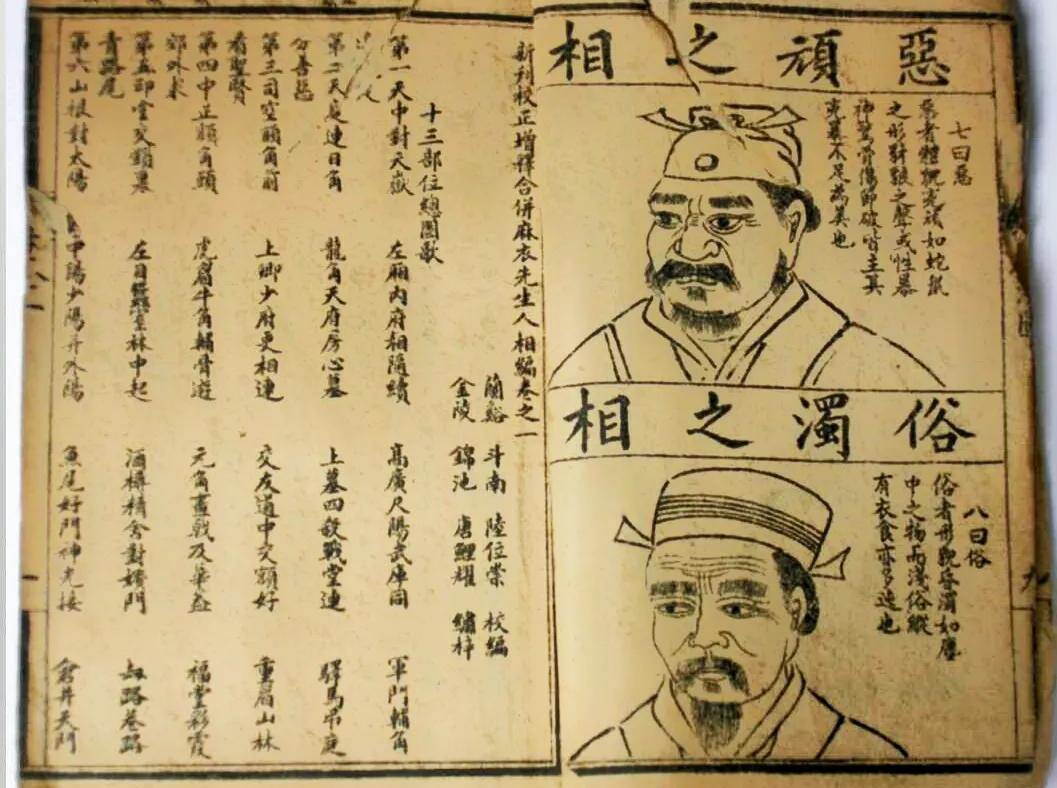 惡頑之相
七曰惡
惡者體貌兇頑如蛇鼠
之形豺狼之聲或性暴
神驚骨傷節破皆主其
兇暴不足為美也
俗濁之相
八曰俗
俗者形貌昏濁如塵
中之物而淺俗縱
有衣食亦多迍也
新刊校正增釋合併麻衣先生人相編卷之一
蘭谿 斗南 陸位崇 校編
金陵 錦池 唐鯉耀 繡梓
十三部位總圖歌
第一天中對天嶽 左廂內府相隨續 高廣尺陽武庫同 軍門輔角
第二天庭連日角 龍角天府房心墓 上墓四殺戰堂連 驛馬吊庭
分善惡
第三司空額角前 上卿少府更相連 交友道中交額好 重眉山林
看聖賢
第四中正額角頭 虎眉牛角輔骨遊 元角畫戟及華蓋 福堂彩霞
郊外求
第五印堂交鎖裏 左目室林中起 酒樽精舍對嬪門 劫路巷路
青路尾
第六山根對太陽 中陽少陽并外陽 魚尾好門神光接 倉井天門